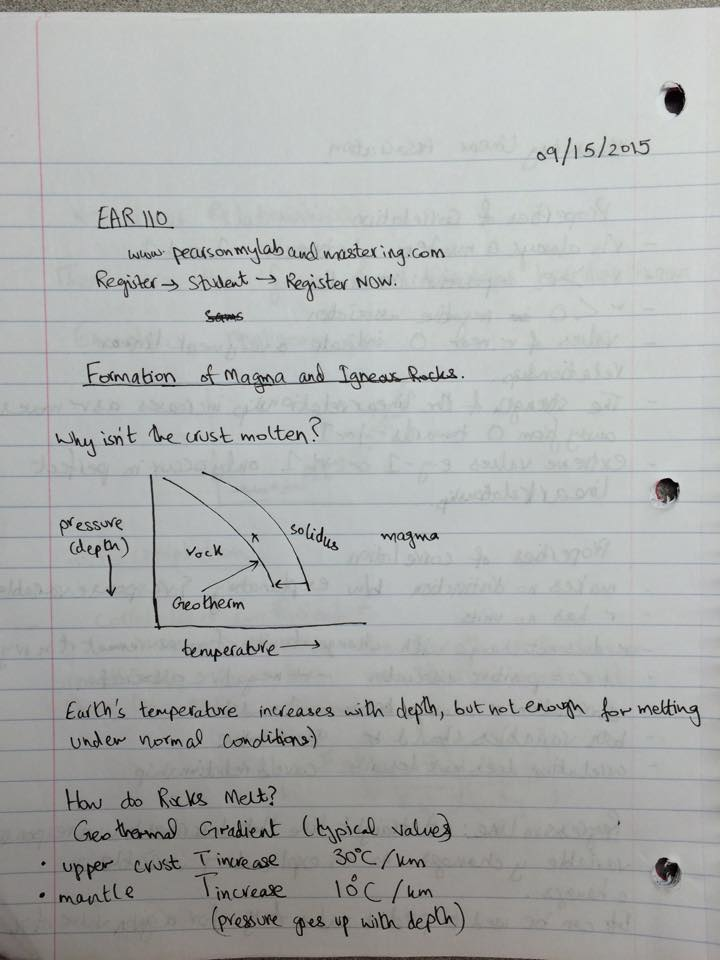 09/15/2015
EAR 110
www.pearsonmylabandmastering.com
Register → Student → Register NOW.
Formation of Magma and Igneous Rocks.
Why isn't the crust molten?
pressure
(depth)
rock
x
solidus
magma
Geotherm
temperature →
Earth's temperature increases with depth, but not enough for melting
under normal conditions)
How do Rocks Melt?
Geothermal Gradient (typical values)
• upper crust T increase 30°C/km
• mantle T increase 10°C/km
(pressure goes up with depth)